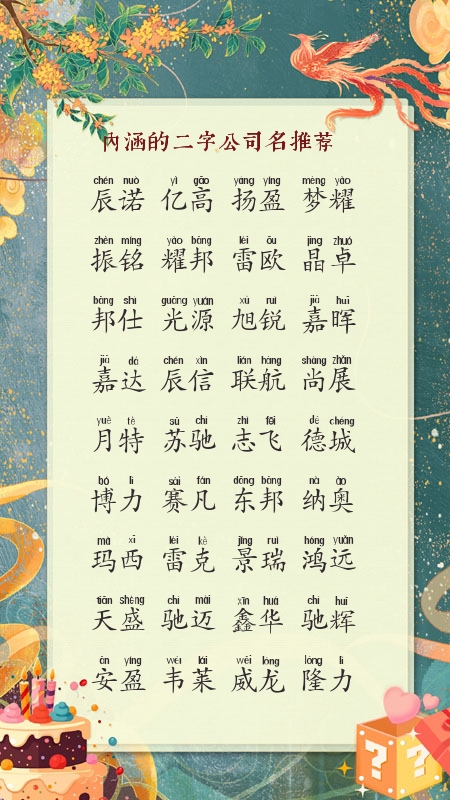 内涵的二字公司名推荐
chén nuò yì gāo yáng yíng mèng yào
辰诺 亿高 扬盈 梦耀
zhèn míng yào bāng léi ōu jīng zhuó
振铭 耀邦 雷欧 晶卓
bāng shì guāng yuán xù ruì jiā huī
邦仕 光源 旭锐 嘉晖
jiā dá chén xìn lián háng shàng zhǎn
嘉达 辰信 联航 尚展
yuè tè sū chí zhì fēi dé chéng
月特 苏驰 志飞 德城
bó lì sài fán dōng bāng nà ào
博力 赛凡 东邦 纳奥
mǎ xī léi kè jǐng ruì hóng yuǎn
玛西 雷克 景瑞 鸿远
tiān shèng chí mài xīn huá chí huī
天盛 驰迈 鑫华 驰辉
ān yíng wéi lái wēi lóng lóng lì
安盈 韦莱 威龙 隆力